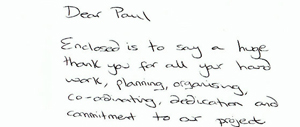 Dear Paul
Enclosed is to say a huge
thank you for all your hard
work, planning, organising,
co-ordinating, dedication and
commitment to our project